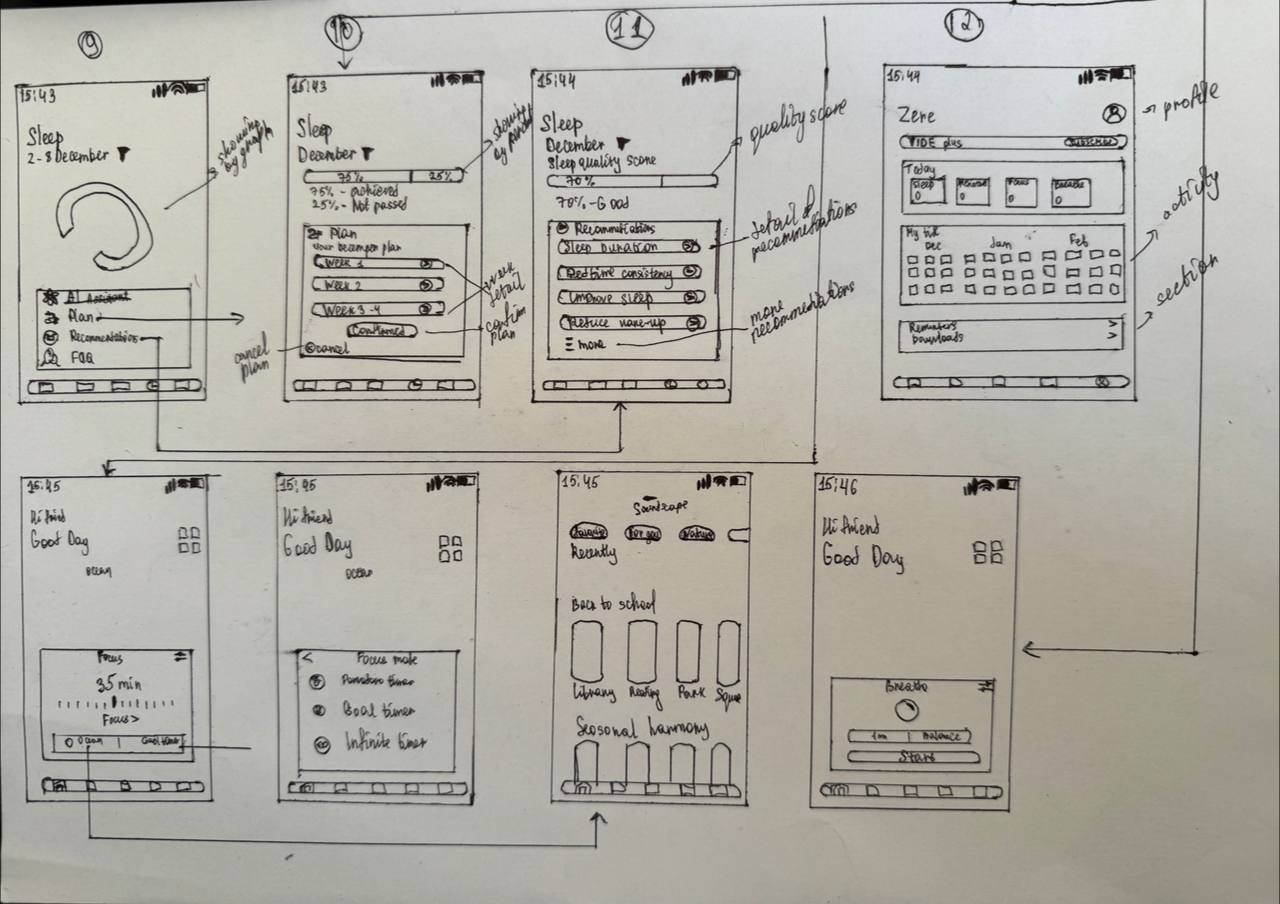 9
15:43
Sleep
2-8 December
showing by graph
AI Assistant
Plan
Recommendation
FAQ
10
15:43
Sleep
December
75% 25%
75% - achieved
25% - Not passed
Plan
your December plan
Week 1
Week 2
Week 3-4
Confirmed
cancel
week detail
confirm plan
cancel plan
11
15:44
Sleep
December
Sleep quality score
70%
70% - Good
Recommediations
Sleep Duration
Bedtime consistency
Improve sleep
Reduce wake-up
more
quality score
detail of recommediations
more recommediations
12
15:44
Zene
plus
Subscribe
Today
Sleep
0
0
Focus
0
Breathe
0
My
Dec Jan Feb
Reminters
Downloads
profile
activity
section
15:45
Hi friend
Good Day
ocean
Focus
35 min
Focus >
Ocean | Goal timer
15:45
Hi friend
Good Day
ocean
< Focus mode
Pomodoro timer
Goal timer
Infinite timer
15:45
Soundscape
Favorite For you Nature
Recently
Back to school
Library Reading Park
Seosonal harmony
15:46
Hi friend
Good Day
Breathe
1m | Balance
Start